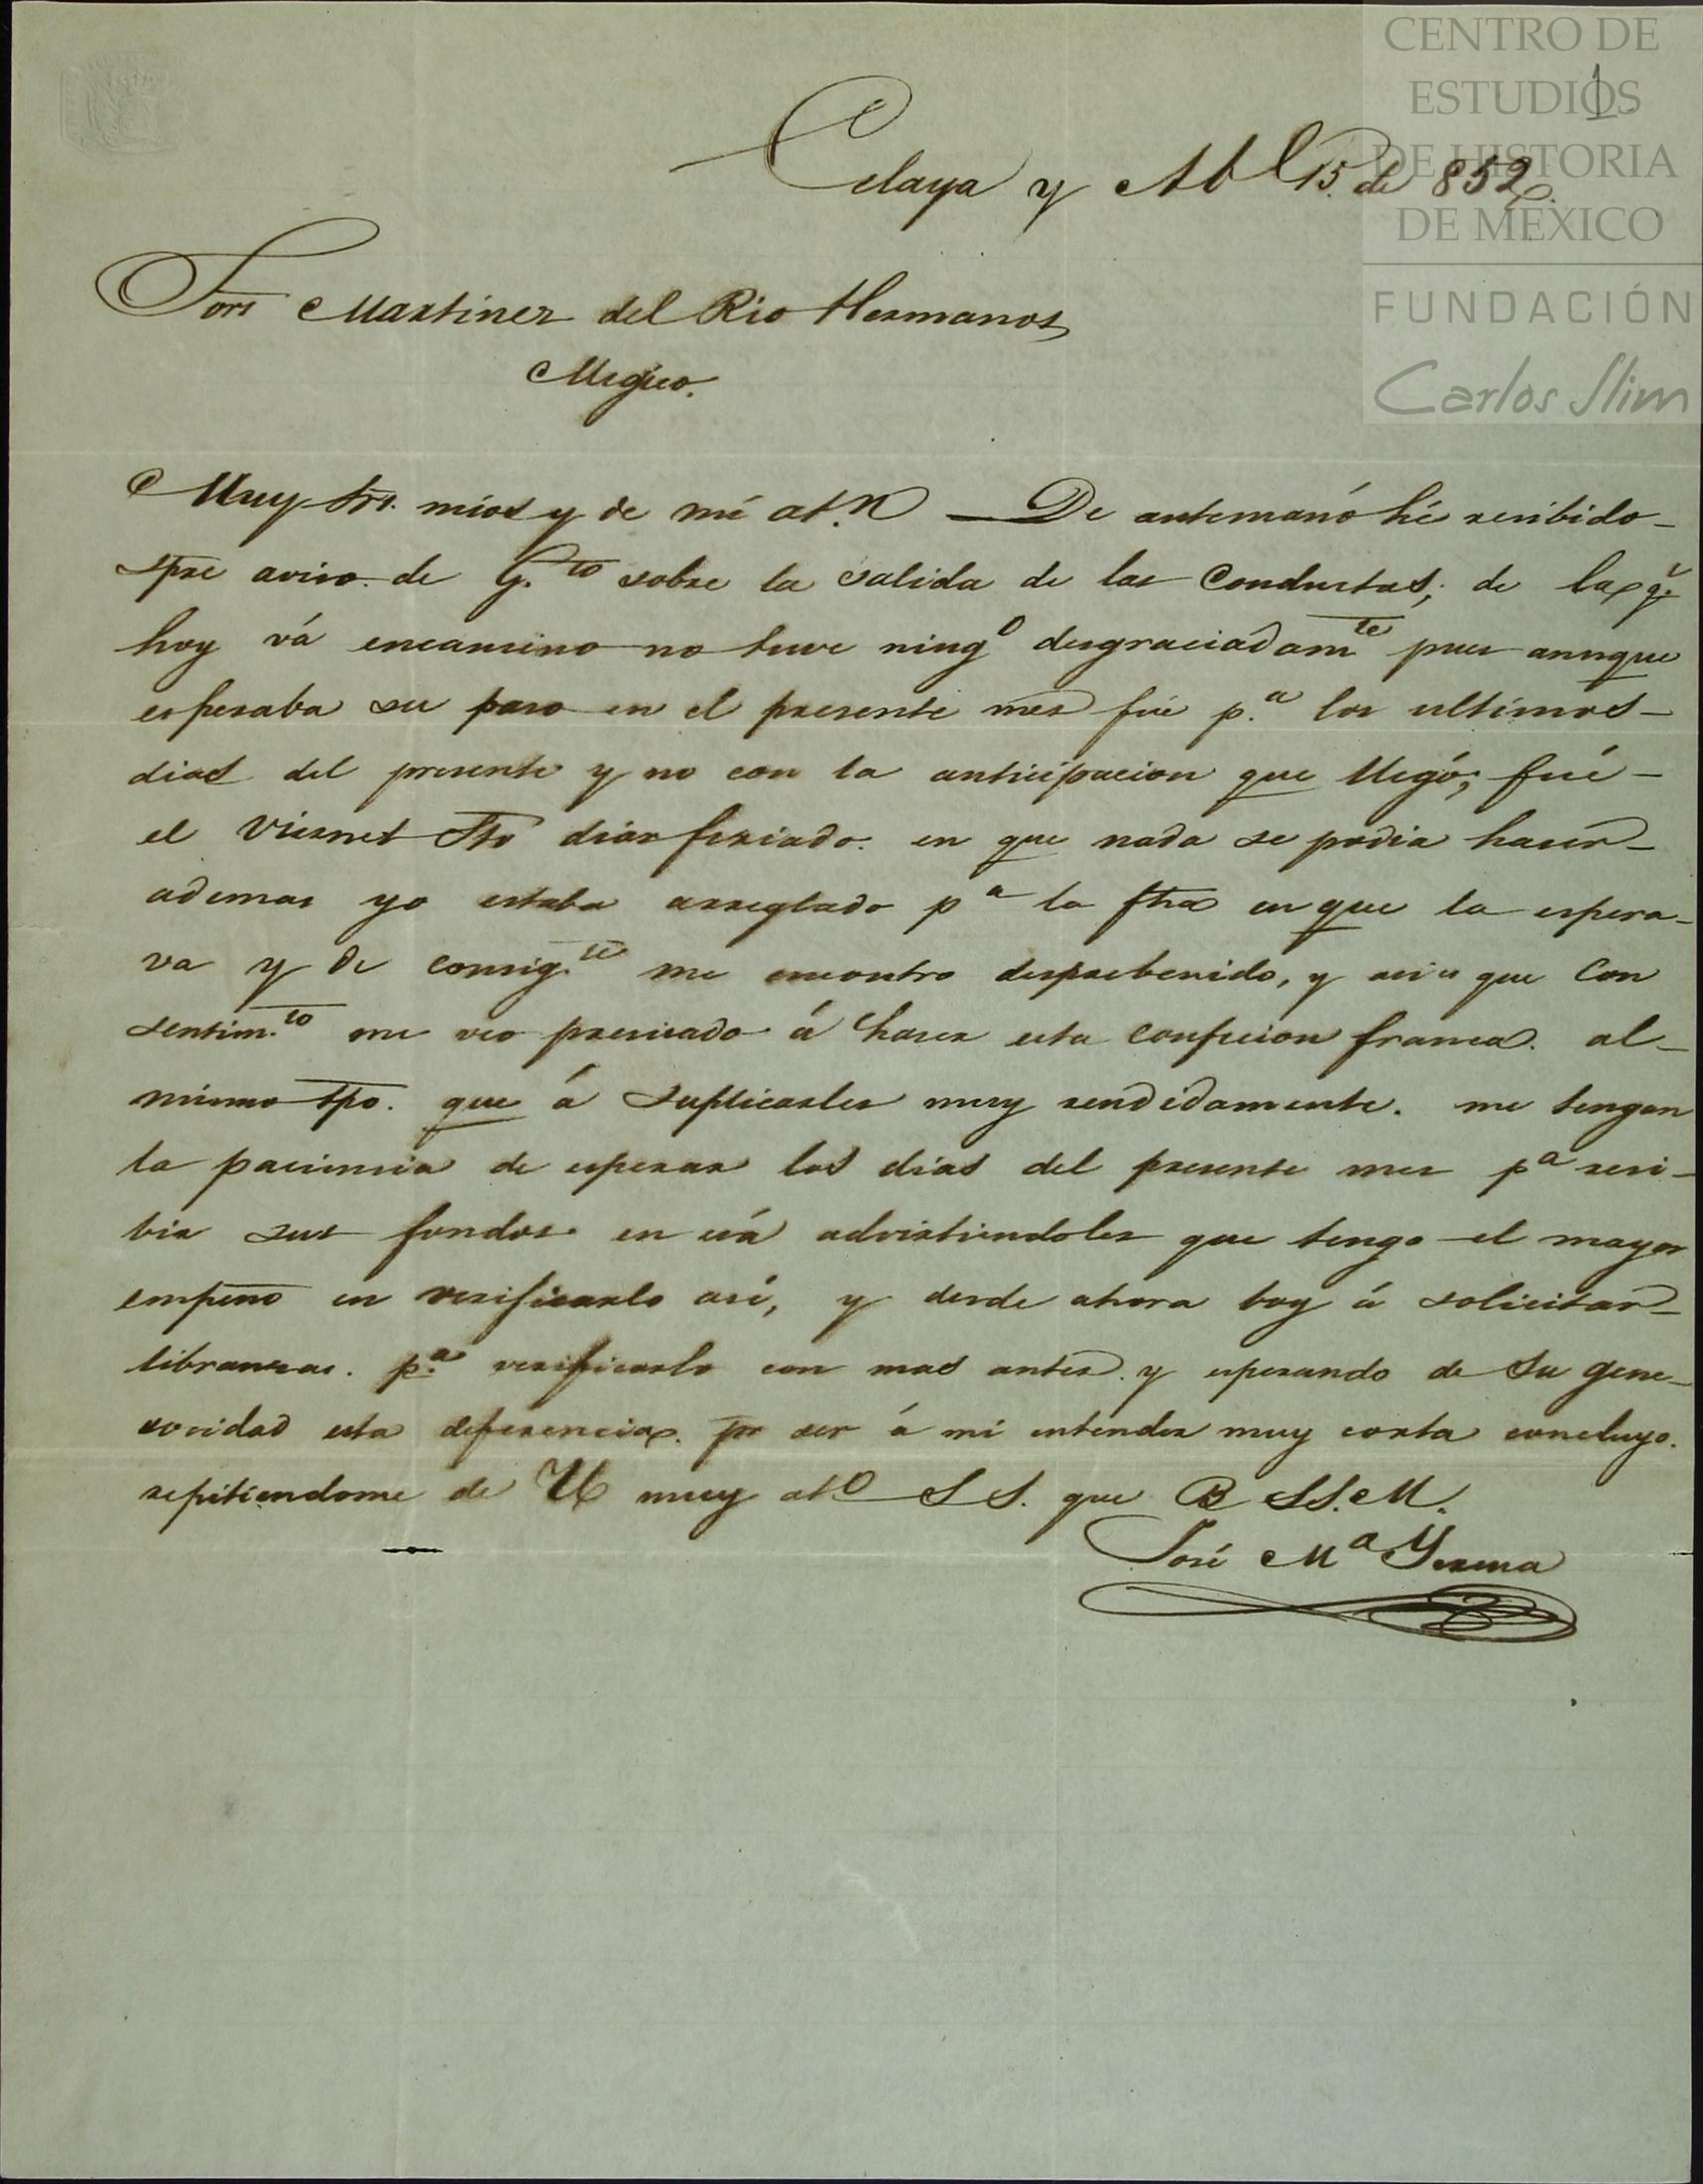 CENTRO DE
ESTUDIOS
DE HISTORIA
DE MÉXICO
FUNDACIÓN
Carlos Slim
1
Celaya y Abl 15. de 852.
Sors Martinez del Rio Hermanos
Megico.
Muy Srs. mios y de mi at.n — De antemano hé resibido
spre aviso. de G.to sobre la salida de las Conductas; de la q.e
hoy vá encamino no tuve ningo desgraciadamte pues aunque
esperaba su paso en el presente mes fué p.a los ultimos
dias del presente y no con la anticipacion que llegó; fué
el Viernes Sto dias feriado. en que nada se podia haser
ademas yo estaba arreglado pa la fha en que la espera-
va y de consig.te me encontro desprebenido, y asi es que Con
sentim.to me veo presisado á haser esta confecion franca. al
mismo tpo. que á suplicarles muy rendidamente. me tengan
la paciencia de esperar los dias del presente mes pa resi-
bir sus fondos. en esá advirtiendoles que tengo el mayor
empeño en verificarlo asi, y desde ahora boy á solicitar
libranzas. p.a verificarlo con mas antes. y esperando de su gene-
rocidad esta deferencia. pr ser á mi entender muy corta concluyo.
repitiendome de U muy ato S S. que B SS. M.
José Ma Yerena